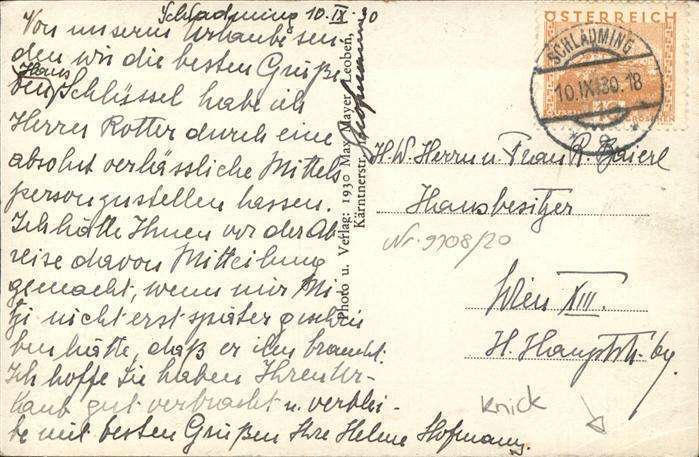 Schladming 10.IX.30
Von unserm Urlaube sen-
den wir die besten Grüße.
Den Haus
Schlüssel habe ich
Herrn Rotter durch eine
absolut verlässliche Mittels
person zustellen lassen.
Ich hätte Ihnen vor der Ab-
reise davon Mitteilung
gemacht, wenn mir Mi-
tzi nicht erst später geschrie-
ben hätte, daß er ihn braucht.
Ich hoffe Sie haben Ihren Ur-
laub gut verbracht u. verblei-
be mit besten Grüßen Ihre Helene Hofmann.
Hofmann
Photo u. Verlag: 1930 Max Mayer, Leoben,
Kärntnerstr.
ÖSTERREICH
GROSCHEN
SCHLADMING
10.IX.30.18
H.W. Herrn u. Frau R. Baierl
Hausbesitzer
Nr. 9908/20
Wien XIII.
H. Hauptstr. 69
Knick